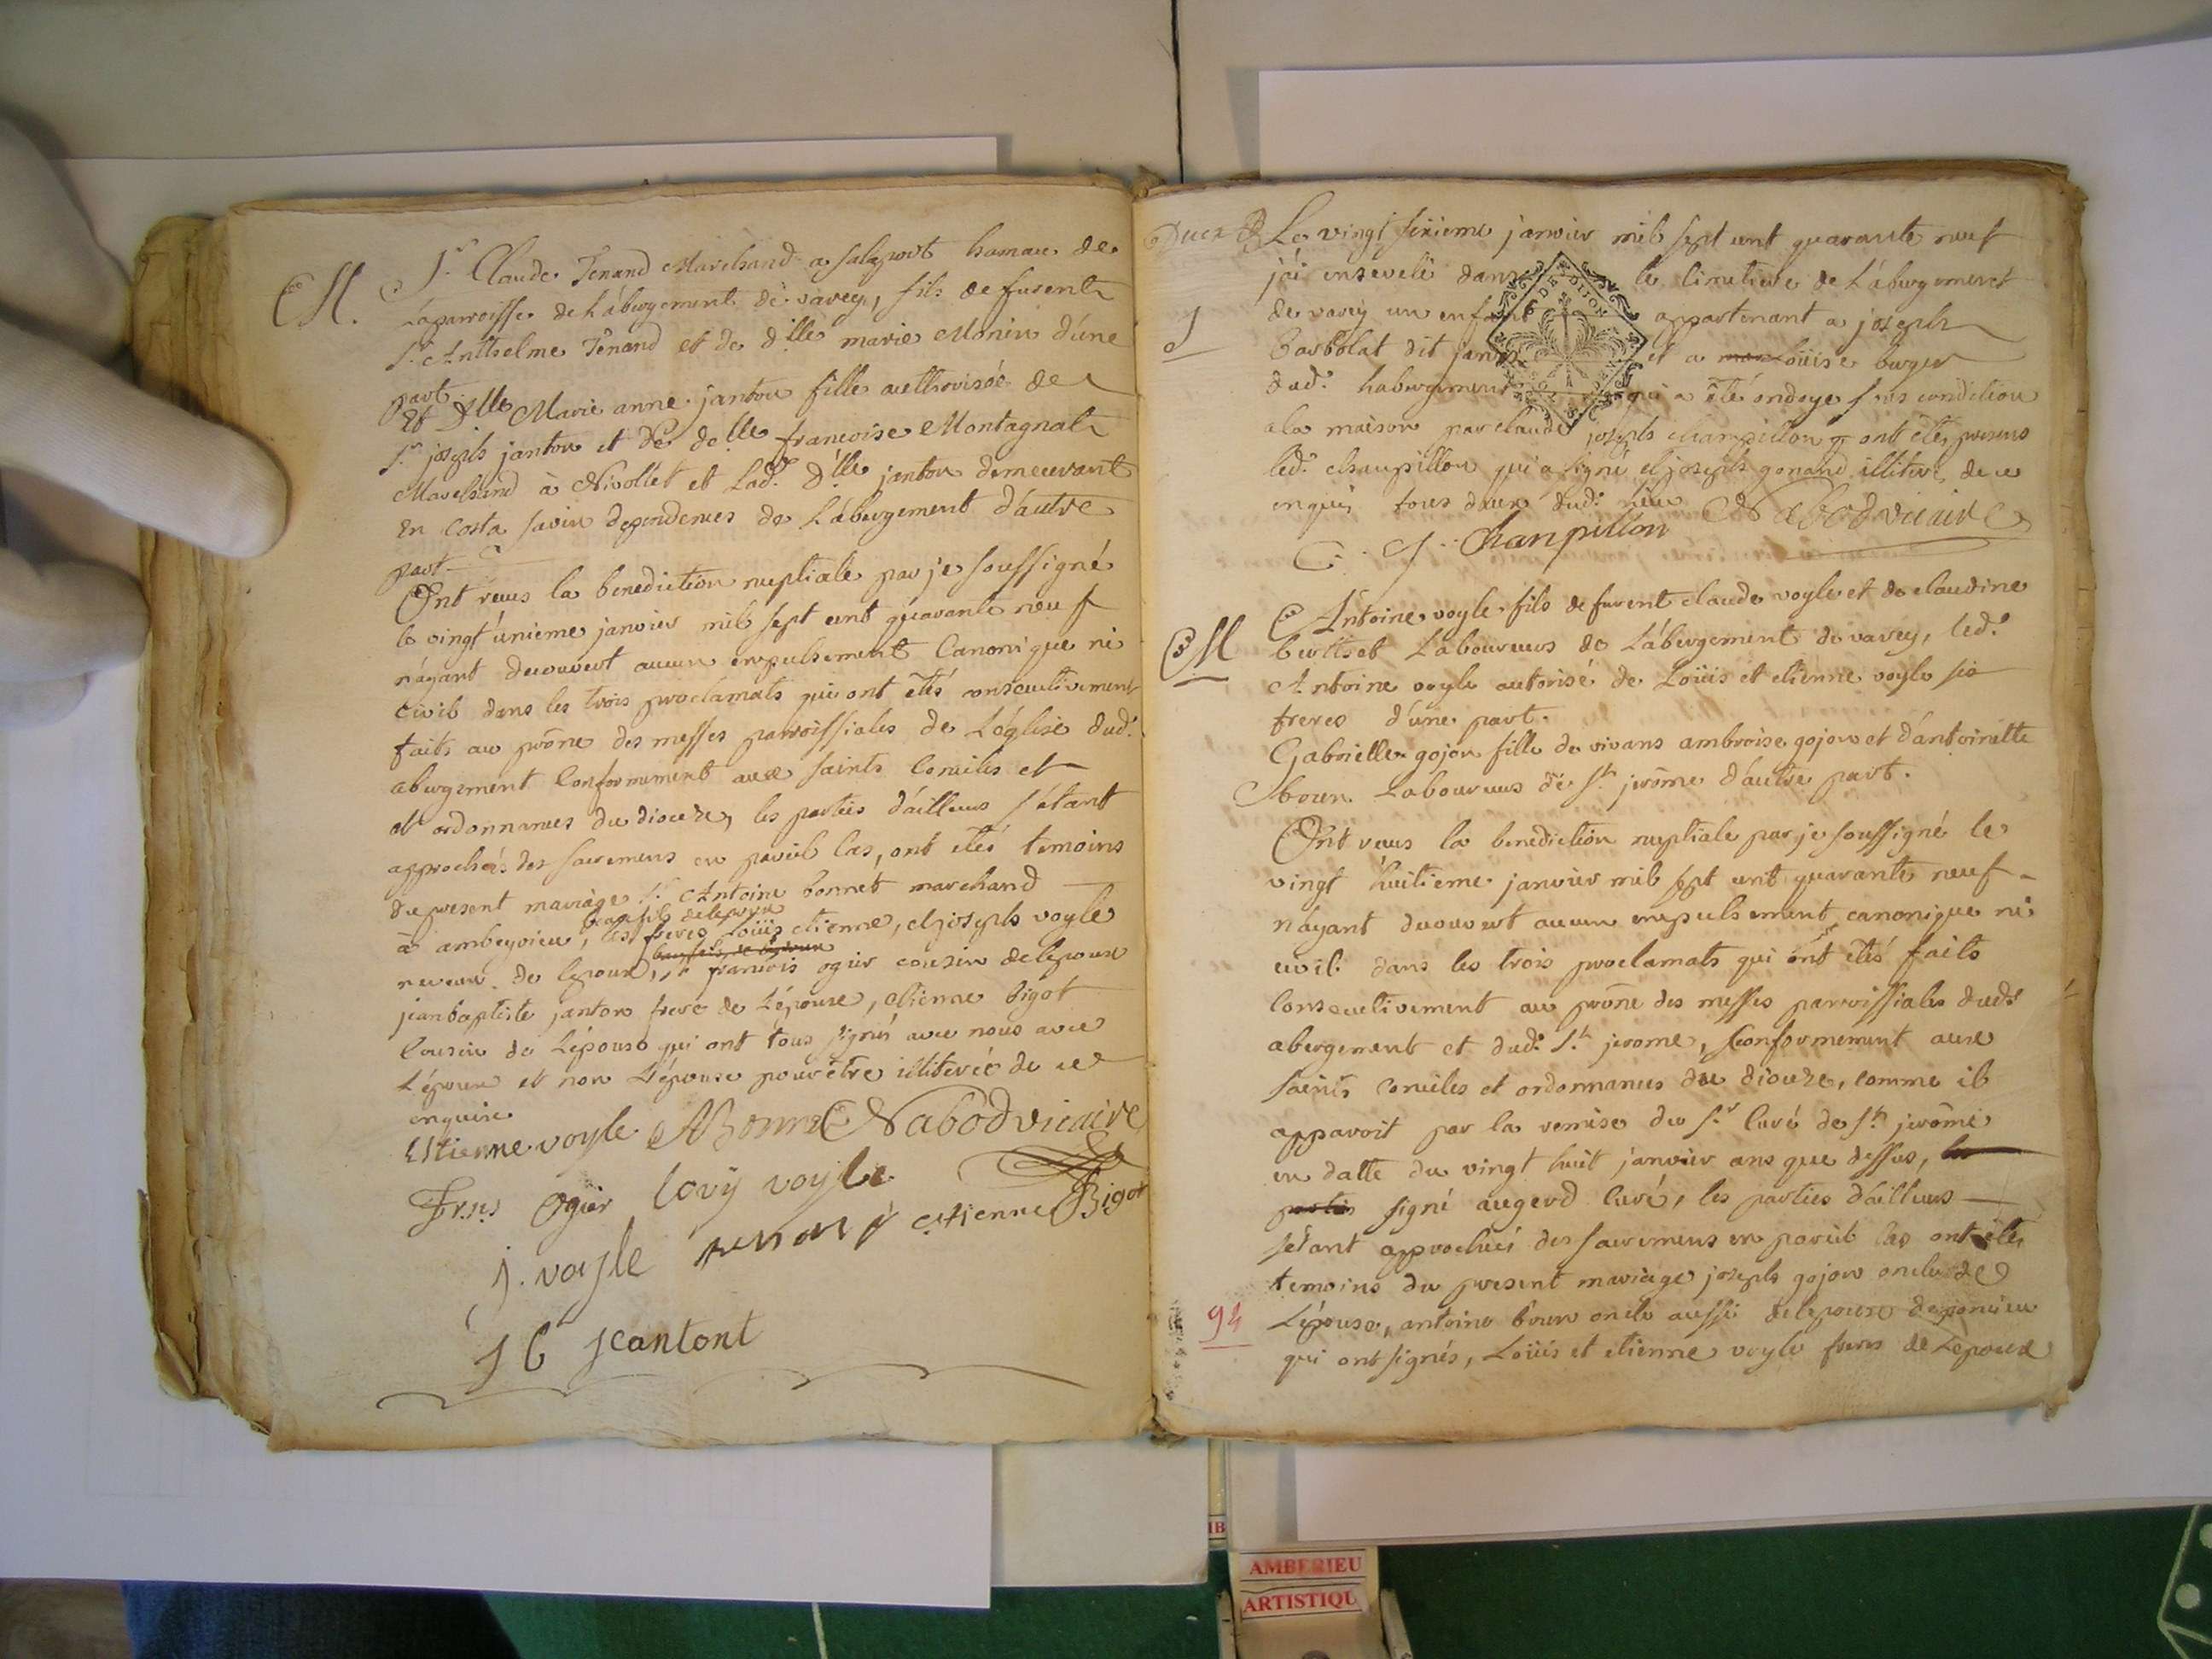 M. Sr. Claude Tenand Marchand a salaport hameau de
La parroisse de L'abergement de varey, fils de furent
Sr. Anthelme Tenand et de dille marie Monin d'une
part
Et Dlle Marie anne janton fille authorisée de
Sr. joseph janton et de delle francoise Montagnat
Marchand à Nivollet et Lad. Dlle janton demeurant
En Costa savin dependences de L'abergement d'autre
part
Ont reçus la benediction nuptiale par je soussigné
le vingt unieme janvier mil sept cent quarante neuf
n'ayant decouvert aucun empechement Canonique ni
civil dans les trois proclamats qui ont étés consecutivement
faits au prône des messes parroissiales de L'église dud.
abergement Conformement aux saints Conciles et
et ordonnances du dioceze, les parties d'ailleurs s'étant
approchés des sacremens en pareil cas, ont étés temoins
du present mariage Sr. Antoine bonnet marchand
à ambeyrieu, beaufils de lepoux
les freres Loüis etienne, et joseph voyle
neveux de lepoux, sr francois ogier cousin de lepoux
jean baptiste janton frere de L'épouse, etienne bigot
Cousin de L'épouse qui ont tous signés avec nous avec
L'époux et non L'épouse pour être illiterée de ce
enquise
Estienne voyle ABonnet Nabod vicaire
Frs. Ogier lovÿ voyle
j. voyle tenand estienne Bigot
J b jeantont
Le vingt sixieme janvier mil sept cent quarante neuf
j'ai enseveli dans le Cimetiere de L'abergement
DE DIJON
de varey un enfant appartenant a joseph
1
barbolat dit janin et a Loüise burger
dud. habergement qui a été ondoye sous condition
a la maison par claude joseph champillon y ont étés presens
led. champillon qui a signé et joseph gonand illiteré de ce
enquis tous deux dud. lieu Nabod vicaire
C. J. Champillon
M Antoine voyle fils de furent claude voyle et de claudine
berthet Laboureurs de L'abergement de varey, led.
Antoine voyle autorisé de Loüis et etienne voyle ses
freres d'une part.
Gabrielle gojon fille de vivans ambroise gojon et d'antoinette
boun Laboureurs de St. jerôme d'autre part.
Ont reçus la benediction nuptiale par je soussigné le
vingt huitieme janvier mil sept cent quarante neuf
n'ayant decouvert aucun empechement canonique ni
civil dans les trois proclamats qui ont étés faits
Consecutivement au prône des messes parroissiales dud.
abergement et dud. St. jerome, Conformement aux
saints Conciles et ordonnances du dioceze, comme il
apparoit par la remise du Sr. Curé de St. jerôme
en datte du vingt huit janvier ans que dessus, les
parties signé augerd curé, les parties d'ailleurs
s'étant approchés des sacremens en pareil cas ont étés
temoins du present mariage joseph gojon oncle de
94 L'épouse, antoine boun oncle aussi de lepouse de poncieu
qui ont signés, Loüis et etienne voyle freres de Lepoux
AMBERIEU
ARTISTIQU